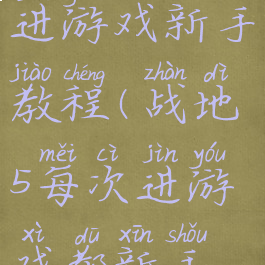 进游戏新手
jiào chéng zhàn dì
教程(战地
měi cì jìn yóu
5每次进游
xì dū xīn shǒu
戏都新手